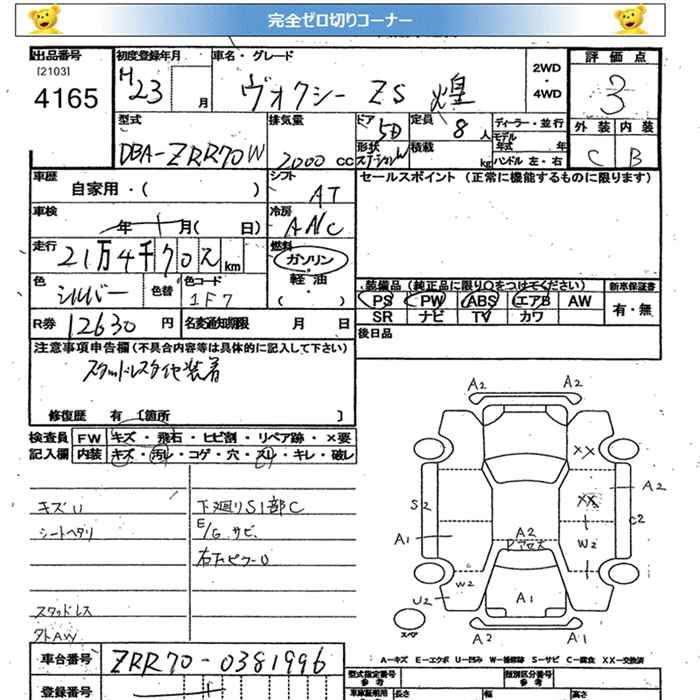 完全ゼロ切りコーナー
出品番号
[2103]
4165
初度登録年月
H23
月
車名・グレード
ヴォクシー ZS 煌
2WD
・
4WD
評価点
3
外装 内装
C B
型式
DBA-ZRR70W
排気量
2000 CC
ドア
5D
形状
定員
8人
積載
kg
ディーラー・並行
モデル年式 年
ハンドル 左・右
車歴
自家用・( )
シフト
AT
セールスポイント (正常に機能するものに限ります)
車検
年 月( 日)
冷房
AAC
走行
21万4千70
km
燃料
ガソリン・
軽油・
( )
色
シルバー
色替
色コード
1F7
装備品 (純正品に限り○をつけてください)
PS PW ABS エアB AW
SR ナビ TV カワ
新車保証書
有・無
R券
12630円
名変通知期限 月 日
後日品
注意事項申告欄(不具合内容等は具体的に記入して下さい)
スタッドレスタイヤ装着
修復歴 有 〔箇所 〕
検査員 FW キズ・飛石・ヒビ割・リペア跡・×要
記入欄 内装 キズ・汚レ・コゲ・穴・スレ・キレ・破レ
キズU
シートヘタリ
スタッドレス
外AW
下廻りS1部C
E/G サビ
A2 A2
XX
S2
XX
A2
C2
A1
A2
W2
W2
U2
A1
スペア
A2 A1
A-キズ E-エクボ U-凹み W-補修跡 S-サビ C-腐食 XX-交換済
車台番号
ZRR70-0381996
登録番号
型式指定番号
参考
類別区分番号
参考
車庫証明用
長さ
幅
高さ